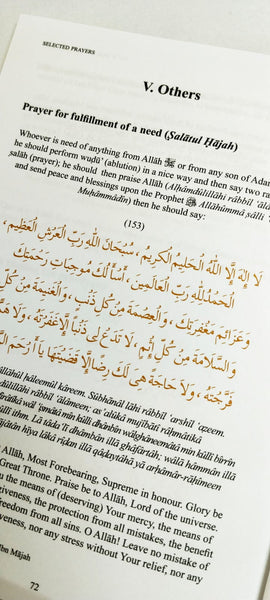 SELECTED PRAYERS
V. Others
Prayer for fulfillment of a need (Ṣalātul Ḥājah)
Whoever is need of anything from Allāh ﷻ or from any son of Adam
he should perform wuḍū' (ablution) in a nice way and then say two ra
ṣalāh (prayer); he should then praise Allāh (Alḥamdulillāhi rābbil 'āla
and send peace and blessings upon the Prophet ﷺ Allāhúmmā ṣálli
Muḥammādin) then he should say:
(153)
لَا إِلٰهَ إِلَّا اللهُ الْحَلِيمُ الْكَرِيمُ، سُبْحَانَ اللهِ رَبِّ الْعَرْشِ الْعَظِيمِ،
الْحَمْدُ لِلّٰهِ رَبِّ الْعَالَمِينَ، أَسْأَلُكَ مُوجِبَاتِ رَحْمَتِكَ
وَعَزَائِمَ مَغْفِرَتِكَ، وَالْعِصْمَةَ مِنْ كُلِّ ذَنْبٍ، وَالْغَنِيمَةَ مِنْ كُلِّ
وَالسَّلَامَةَ مِنْ كُلِّ إِثْمٍ، لَا تَدَعْ لِي ذَنْبًا إِلَّا غَفَرْتَهُ، وَلَا هَمًّا
فَرَّجْتَهُ، وَلَا حَاجَةً هِيَ لَكَ رِضًا إِلَّا قَضَيْتَهَا يَا أَرْحَمَ ال
ḥáleemúl káreem. Súbhānál lāhi rábbil 'arshil 'aẓeem.
rábbil 'ālāmeen; as'alúká mujibāti ráḥmátiká
wál 'iṣmátá min kúlli dhánbin wálghāneemátá min kúlli birrin
kúlli ithm. Lā táda' lī dhámbán illā gháfártáh; wálā hámmán illā
ḥājátán híyá láká riḍán illā qáḍáytáhā yā arḥámár-rāḥimeen
Allāh, Most Forebearing, Supreme in honour. Glory be
Great Throne. Praise be to Allāh, Lord of the universe.
the means of (deserving) Your mercy, the means of
forgiveness, the protection from all mistakes, the benefit
freedom from all sins. O Allāh! Leave no mistake of
nor any stress without Your relief, nor any
Ibn Mājah
72